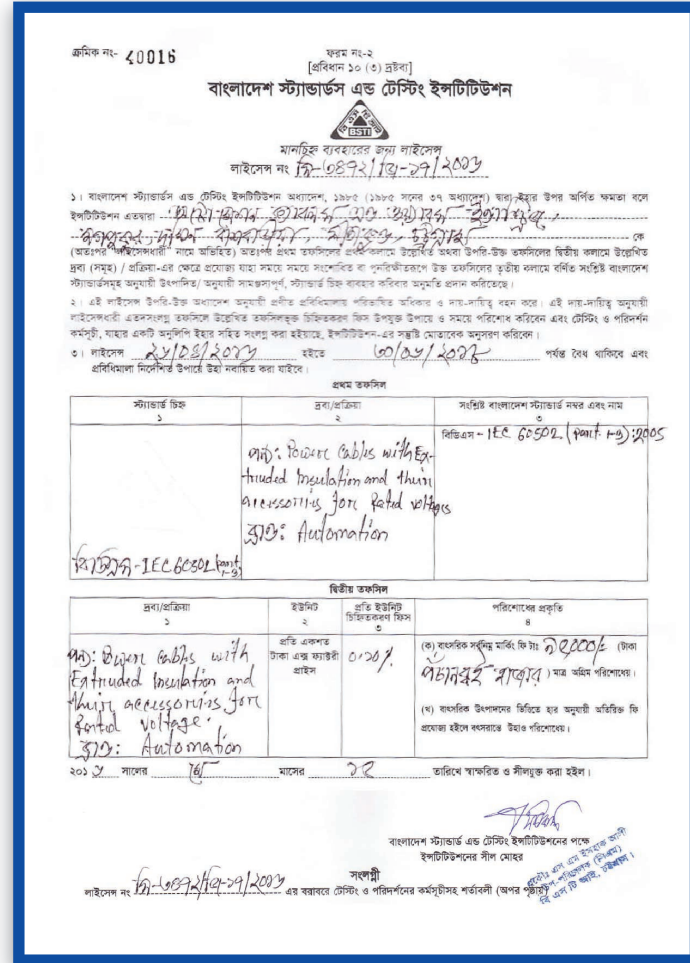 ক্রমিক নং- 40016
ফরম নং-২
[প্রবিধান ১০ (৩) দ্রষ্টব্য]
বাংলাদেশ স্ট্যান্ডার্ডস এন্ড টেস্টিং ইন্সটিটিউশন
BSTI
মানচিহ্ন ব্যবহারের জন্য লাইসেন্স
লাইসেন্স নং
১। বাংলাদেশ স্ট্যান্ডার্ডস এন্ড টেস্টিং ইন্সটিটিউশন অধ্যাদেশ, ১৯৮৫ (১৯৮৫ সনের ৩৭ অধ্যাদেশ) দ্বারা ইহার উপর অর্পিত ক্ষমতা বলে
ইন্সটিটিউশন এতদ্বারা
কে
(অতঃপর "লাইসেন্সধারী" নামে অভিহিত) অতঃপর প্রথম তফসিলের প্রথম কলামে উল্লেখিত অথবা উপরি-উক্ত তফসিলের দ্বিতীয় কলামে উল্লেখিত
দ্রব্য (সমূহ) / প্রক্রিয়া-এর ক্ষেত্রে প্রযোজ্য যাহা সময়ে সময়ে সংশোধিত বা পুনরিক্ষীতরূপে উক্ত তফসিলের তৃতীয় কলামে বর্ণিত সংশ্লিষ্ট বাংলাদেশ
স্ট্যান্ডার্ডসমূহ অনুযায়ী উৎপাদিত/ অনুযায়ী সামঞ্জস্যপূর্ণ, স্ট্যান্ডার্ড চিহ্ন ব্যবহার করিবার অনুমতি প্রদান করিতেছে।
২। এই লাইসেন্স উপরি-উক্ত অধ্যাদেশ অনুযায়ী প্রণীত প্রবিধিমালায় পরিভাষিত অধিকার ও দায়-দায়িত্ব বহন করে। এই দায়-দায়িত্ব অনুযায়ী
লাইসেন্সধারী এতদসংলগ্ন তফসিলে উল্লেখিত তফসিলভুক্ত চিহ্নিতকরণ ফিস উপযুক্ত উপায়ে ও সময়ে পরিশোধ করিবেন এবং টেস্টিং ও পরিদর্শন
কর্মসূচী, যাহার একটি অনুলিপি ইহার সহিত সংলগ্ন করা হইয়াছে, ইন্সটিটিউশন-এর সন্তুষ্টি মোতাবেক অনুসরণ করিবেন।
৩। লাইসেন্স হইতে পর্যন্ত বৈধ থাকিবে এবং
প্রবিধিমালা নির্দেশিত উপায়ে উহা নবায়িত করা যাইবে।
প্রথম তফসিল
স্ট্যান্ডার্ড চিহ্ন
১
দ্রব্য/প্রক্রিয়া
২
সংশ্লিষ্ট বাংলাদেশ স্ট্যান্ডার্ড নম্বর এবং নাম
৩
বিডিএস - IEC 60502 (part 1-3):2005
পন্য: Power Cables with Ex-
truded Insulation and their
accessories for Rated voltages
ব্রান্ড: Automation
বিডিএস-IEC 60502 (part 1-3)
দ্বিতীয় তফসিল
দ্রব্য/প্রক্রিয়া
১
ইউনিট
২
প্রতি ইউনিট
চিহ্নিতকরণ ফিস
৩
পরিশোধের প্রকৃতি
৪
পন্য: Power Cables with
Extruded Insulation and
their accessories for
Rated voltage.
ব্রান্ড: Automation
প্রতি একশত
টাকা এক্স ফ্যাক্টরী
প্রাইস
০.১০%
(ক) বাৎসরিক সর্বনিম্ন মার্কিং ফি টাঃ ৯৫,০০০/= (টাকা
পঁচানব্বই হাজার) মাত্র অগ্রিম পরিশোধেয়।
(খ) বাৎসরিক উৎপাদনের ভিত্তিতে হার অনুযায়ী অতিরিক্ত ফি
প্রযোজ্য হইলে বৎসরান্তে উহাও পরিশোধেয়।
২০১ সালের মে মাসের তারিখে স্বাক্ষরিত ও সীলযুক্ত করা হইল।
বাংলাদেশ স্ট্যান্ডার্ড এন্ড টেস্টিং ইন্সটিটিউশনের পক্ষে
ইন্সটিটিউশনের সীল মোহর
সংলগ্নী
লাইসেন্স নং এর বরাবরে টেস্টিং ও পরিদর্শনের কর্মসূচীসহ শর্তাবলী (অপর পৃষ্ঠায়)